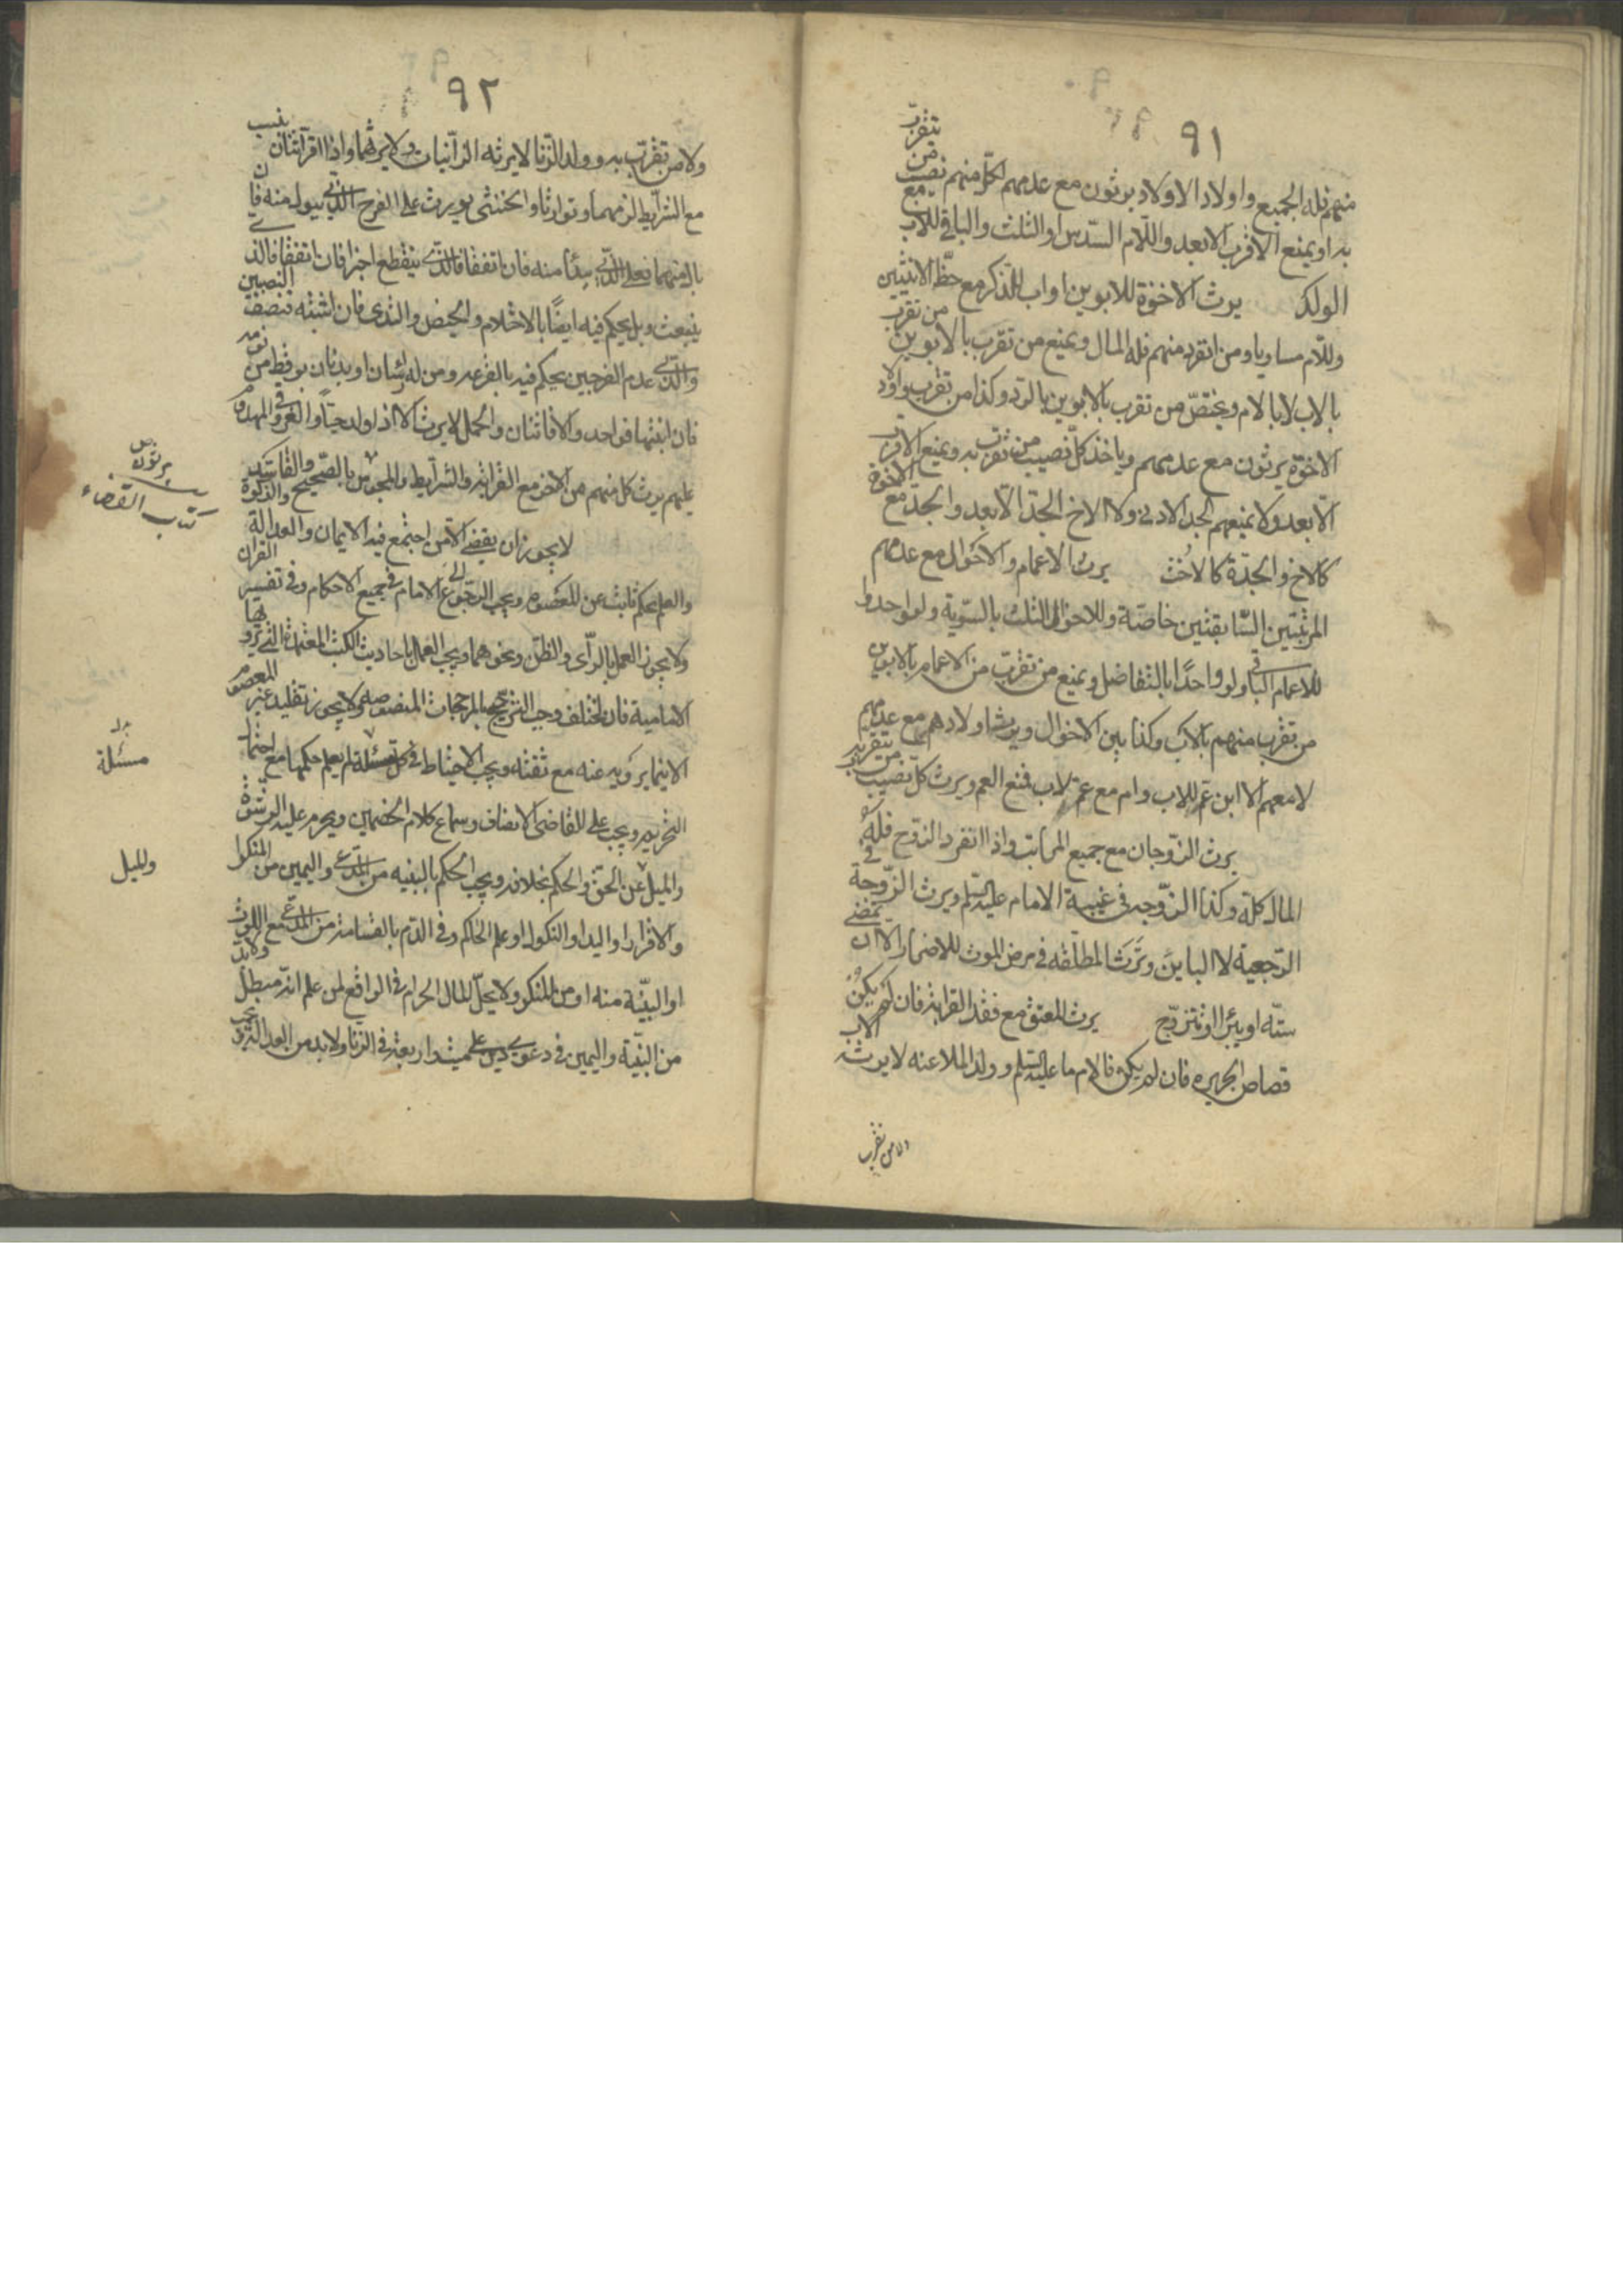 ٩١
منهم فله الجميع واولاد الاولاد يرثون مع عدمهم لكل منهم نصيب من يتقرب
به او يمنع الاقرب الابعد وللام السدس او الثلث والباقي للاب مع
الولد يرث الاخوة للابوين او اب للذكر مع حظ الانثيين
وللام مساويا ومن انفرد منهم فله المال ويمنع من تقرب بالابوين من تقرب
بالاب لا بالام ويختص من تقرب بالابوين بالرد وكذا من تقرب واولاد
الاخوة يرثون مع عدمهم وياخذ كل نصيب من تقرب به ويمنع الاقرب
الابعد ولا يمنعهم الجد الادنى ولا الاخ الجد الابعد والجد مع الاخوة
كالاخ والجدة كالاخت يرث الاعمام والاخوال مع عدمهم
المرتبتين السابقتين خاصة وللاخوال الثلث بالسوية ولو واحدا و
للاعمام الباقي ولو واحدًا بالتفاضل ويمنع من تقرب من الاعمام بالابوين
من تقرب منهم بالاب وكذا بين الاخوال ويرث اولادهم مع عدمهم
لا معهم الا ابن عم للاب وام مع عم لاب فمنع العم ويرث كل نصيب من يتقرب به
يرث الزوجان مع جميع المراتب واذا انفرد الزوج فله
المال كله وكذا الزوجة في غيبة الامام عليه السلم ويرث الزوجة في
الرجعية لا الباين وترث المطلقه في مرض الموت للاضرار الا ان تمضى
سنه او يبرئ او تتزوج يرث المعتق مع فقد القرابة فان لم يكن
ضامن الجريره فان لم يكن فالامام عليه السلم وولد الملاعنه لا يرث الاب
ولا من تقرب
٩٢
ولا من تقرب به وولد الزنا لا يرثه الزانيان ولا يرثهما واذا اقر اثنان بنسب
مع الشرايط لزمهما وتوارثا والخنثى يورث على الفرج الذي يبول منه فان
بال منهما فعلى الذي يبدأ منه فان اتفقا فالذي ينقطع اخرا فان اتفقا فالذي
ينبعث وبل يحكم فيه ايضًا بالاحتلام والحيض والثدى فان اشتبه فنصف النصيبين
والذي عدم الفرجين يحكم فيه بالقرعه ومن له راسان او بدنان يوقظ من نومه
فان انتبها فواحد والا فاثنان والحمل لا يرث الا اذا ولد حيًا والغرقى والمهدوم
عليهم يرث كل منهم من الاخر مع القرابة والشرايط والمجوس بالصحيح والفاسد
يرثون
كتاب القضاء
لا يجوز ان يقضي الا من اجتمع فيه الايمان والعدالة والذكورة
والعلم بحكم ثابت عن المعصوم ويجب الرجوع الى الامام في جميع الاحكام وفي تفسير القران
ولا يجوز العمل بالرأى والظن ونحوهما ويجب العمل باحاديث الكتب المعتمدة التي يرويها
الامامية فان اختلف وجب الترجيح بالمرجحات المنصوصه ولا يجوز تقليد غير المعصوم
الا فيما يرويه عنه مع ثقته ويجب الاحتياط في كل مسئلة لم يعلم حكمها مع احتمال
مسئلة
التحريم ويجب على القاضى الانصاف وسماع كلام الخصمين ويحرم عليه الرشوة
والميل عن الحق والحكم بخلافه ويجب الحكم بالبينه من المدعي واليمين من المنكر او
والميل
والاقرار او اليد او النكول او علم الحاكم وفى الدم بالقسامة من المدعي مع اللوث
او البينة منه او من المنكر ولا يحل المال الحرام في الواقع لمن علم انه مبطل ولابد
من البينة واليمين في دعوى دين على ميت واربعة في الزنا ولا بد من العدالة